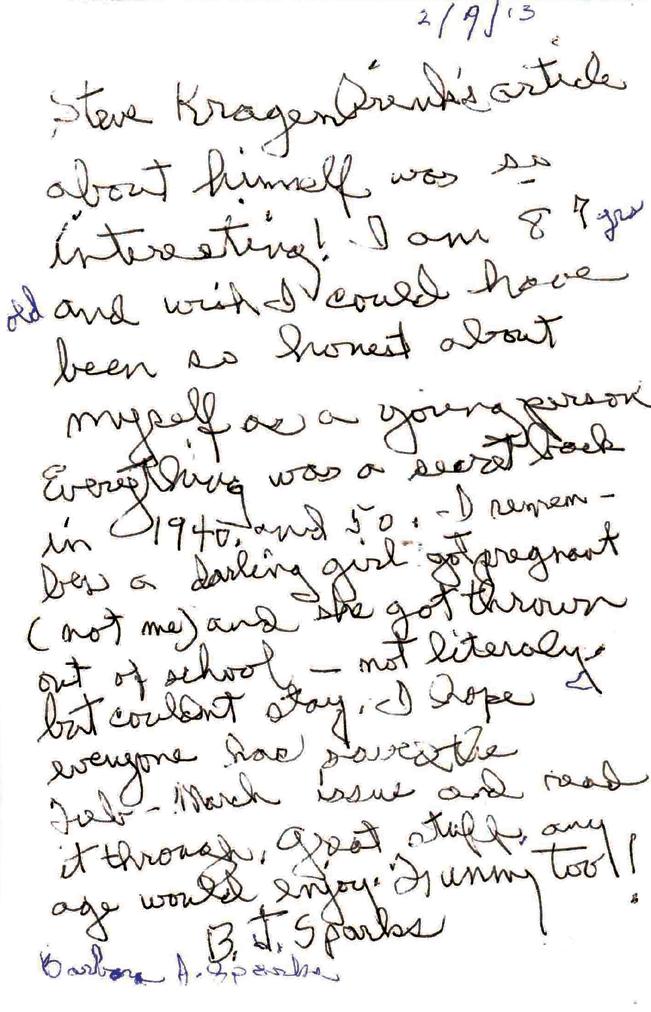 2/9/13
Steve Kragenbrink's article
about himself was so
interesting! I am 87 yrs
old and wish I could have
been so honest about
myself as a young person
Everything was a secret back
in 1940, and 50. I remem-
ber a darling girl got pregnant
(not me) and she got thrown
out of school, - not literaly.
but couldnt stay. I hope
everyone has saved the
Feb - March issue and read
it through. Great stuff, any
age would enjoy. Funny too!
B. J. Sparks
Barbara A. Sparks